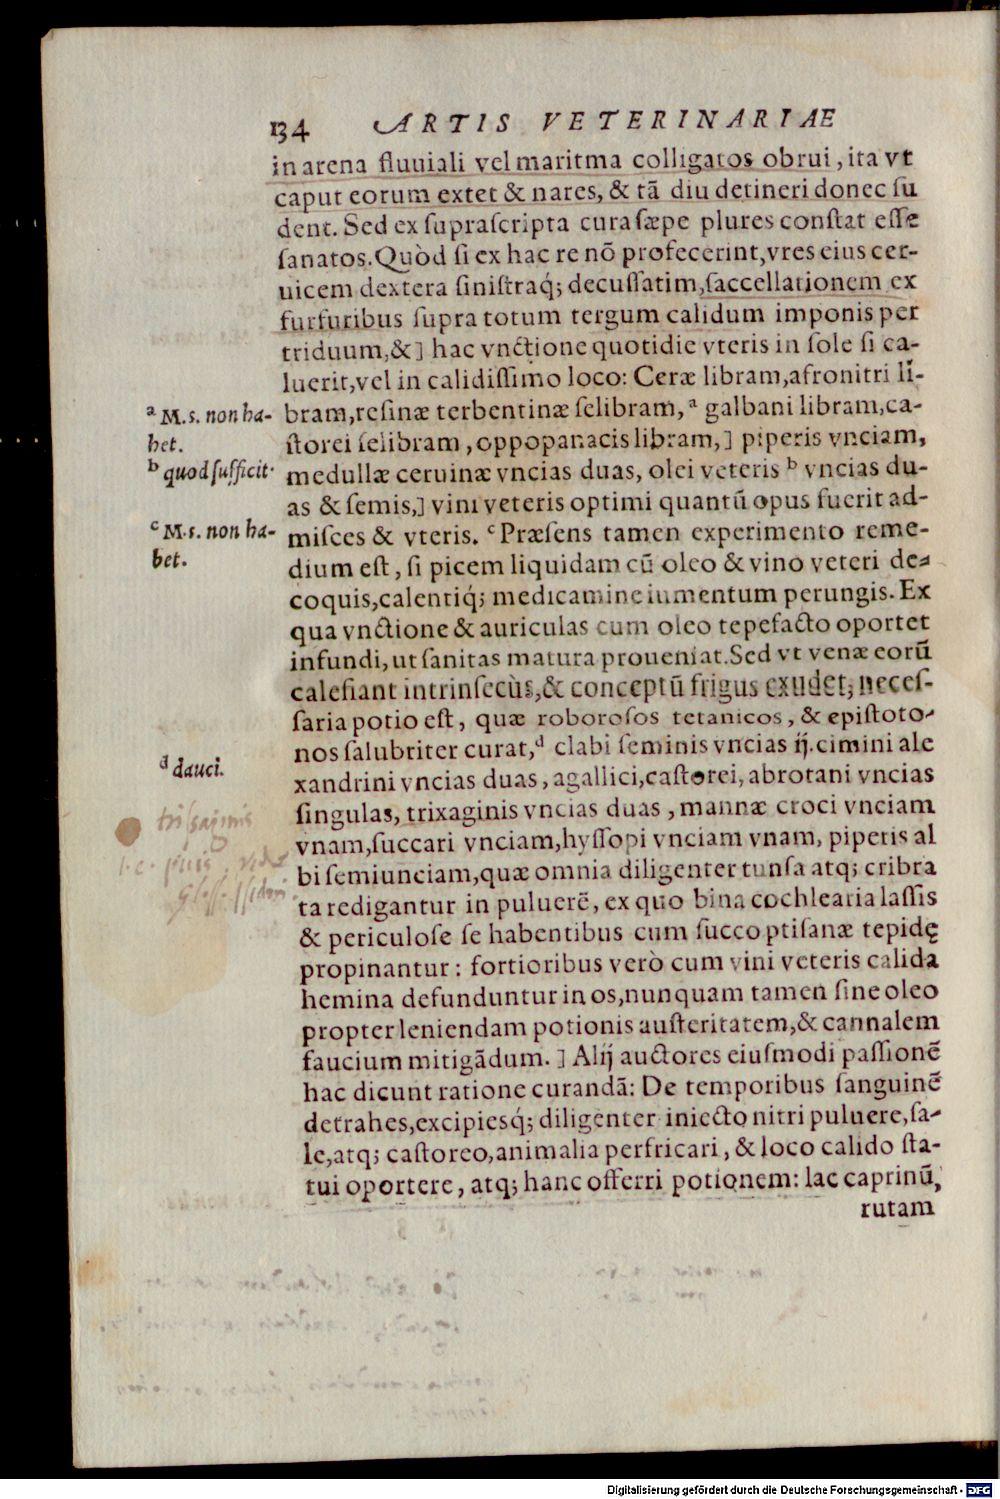 134 ARTIS VETERINARIAE
in arena fluuiali vel maritma colligatos obrui, ita vt
caput eorum extet & nares, & tã diu detineri donec su
dent. Sed ex suprascripta cura sæpe plures constat esse
sanatos. Quòd si ex hac re nõ profecerint, vres eius cer-
uicem dextera sinistraq́; decussatim, saccellationem ex
furfuribus supra totum tergum calidum imponis per
triduum, &] hac vnctione quotidie vteris in sole si ca-
luerit, vel in calidissimo loco: Ceræ libram, afronitri li-
bram, resinæ terbentinæ selibram, ᵃ galbani libram, ca-
storei selibram, oppopanacis libram,] piperis vnciam,
medullæ ceruinæ vncias duas, olei veteris ᵇ vncias du-
as & semis,] vini veteris optimi quantũ opus fuerit ad-
misces & vteris. ᶜ Præsens tamen experimento reme-
dium est, si picem liquidam cũ oleo & vino veteri de-
coquis, calentiq́; medicamine iumentum perungis. Ex
qua vnctione & auriculas cum oleo tepefacto oportet
infundi, ut sanitas matura proueniat. Sed vt venæ eorũ
calefiant intrinsecùs, & conceptũ frigus exudet, neces-
saria potio est, quæ roborosos tetanicos, & epistoto-
nos salubriter curat, ᵈ clabi seminis vncias ij. cimini ale
xandrini vncias duas, agallici, castorei, abrotani vncias
singulas, trixaginis vncias duas, mannæ croci vnciam
vnam, succari vnciam, hyssopi vnciam vnam, piperis al
bi semiunciam, quæ omnia diligenter tunsa atq; cribra
ta redigantur in puluerẽ, ex quo bina cochlearia lassis
& periculose se habentibus cum succo ptisanæ tepidę
propinantur: fortioribus verò cum vini veteris calida
hemina defunduntur in os, nunquam tamen sine oleo
propter leniendam potionis austeritatem, & cannalem
faucium mitigãdum.] Alij auctores eiusmodi passionẽ
hac dicunt ratione curandã: De temporibus sanguinẽ
detrahes, excipiesq́; diligenter iniecto nitri puluere, sa-
le, atq; castoreo, animalia perfricari, & loco calido sta-
tui oportere, atq; hanc offerri potionem: lac caprinũ,
rutam
ᵃ M.s. non ha-
bet.
ᵇ quod sufficit.
ᶜ M.s. non ha-
bet.
ᵈ dauci.
trissaginis
Digitalisierung gefördert durch die Deutsche Forschungsgemeinschaft - DFG